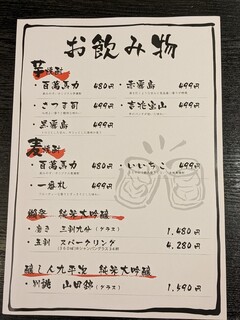 お飲み物
芋焼酎
・百萬馬力 480円 ・赤霧島 499円
・さつま司 499円 ・吉兆宝山 499円
・黒霧島 499円
麦焼酎
・百萬馬力 480円 ・いいちこ 499円
・一番札 499円
獺祭 純米大吟醸
・磨き 三割九分(グラス) 1,480円
・五割 スパークリング 4,280円
醸し人九平次 純米大吟醸
・別誂 山田錦(グラス) 1,590円